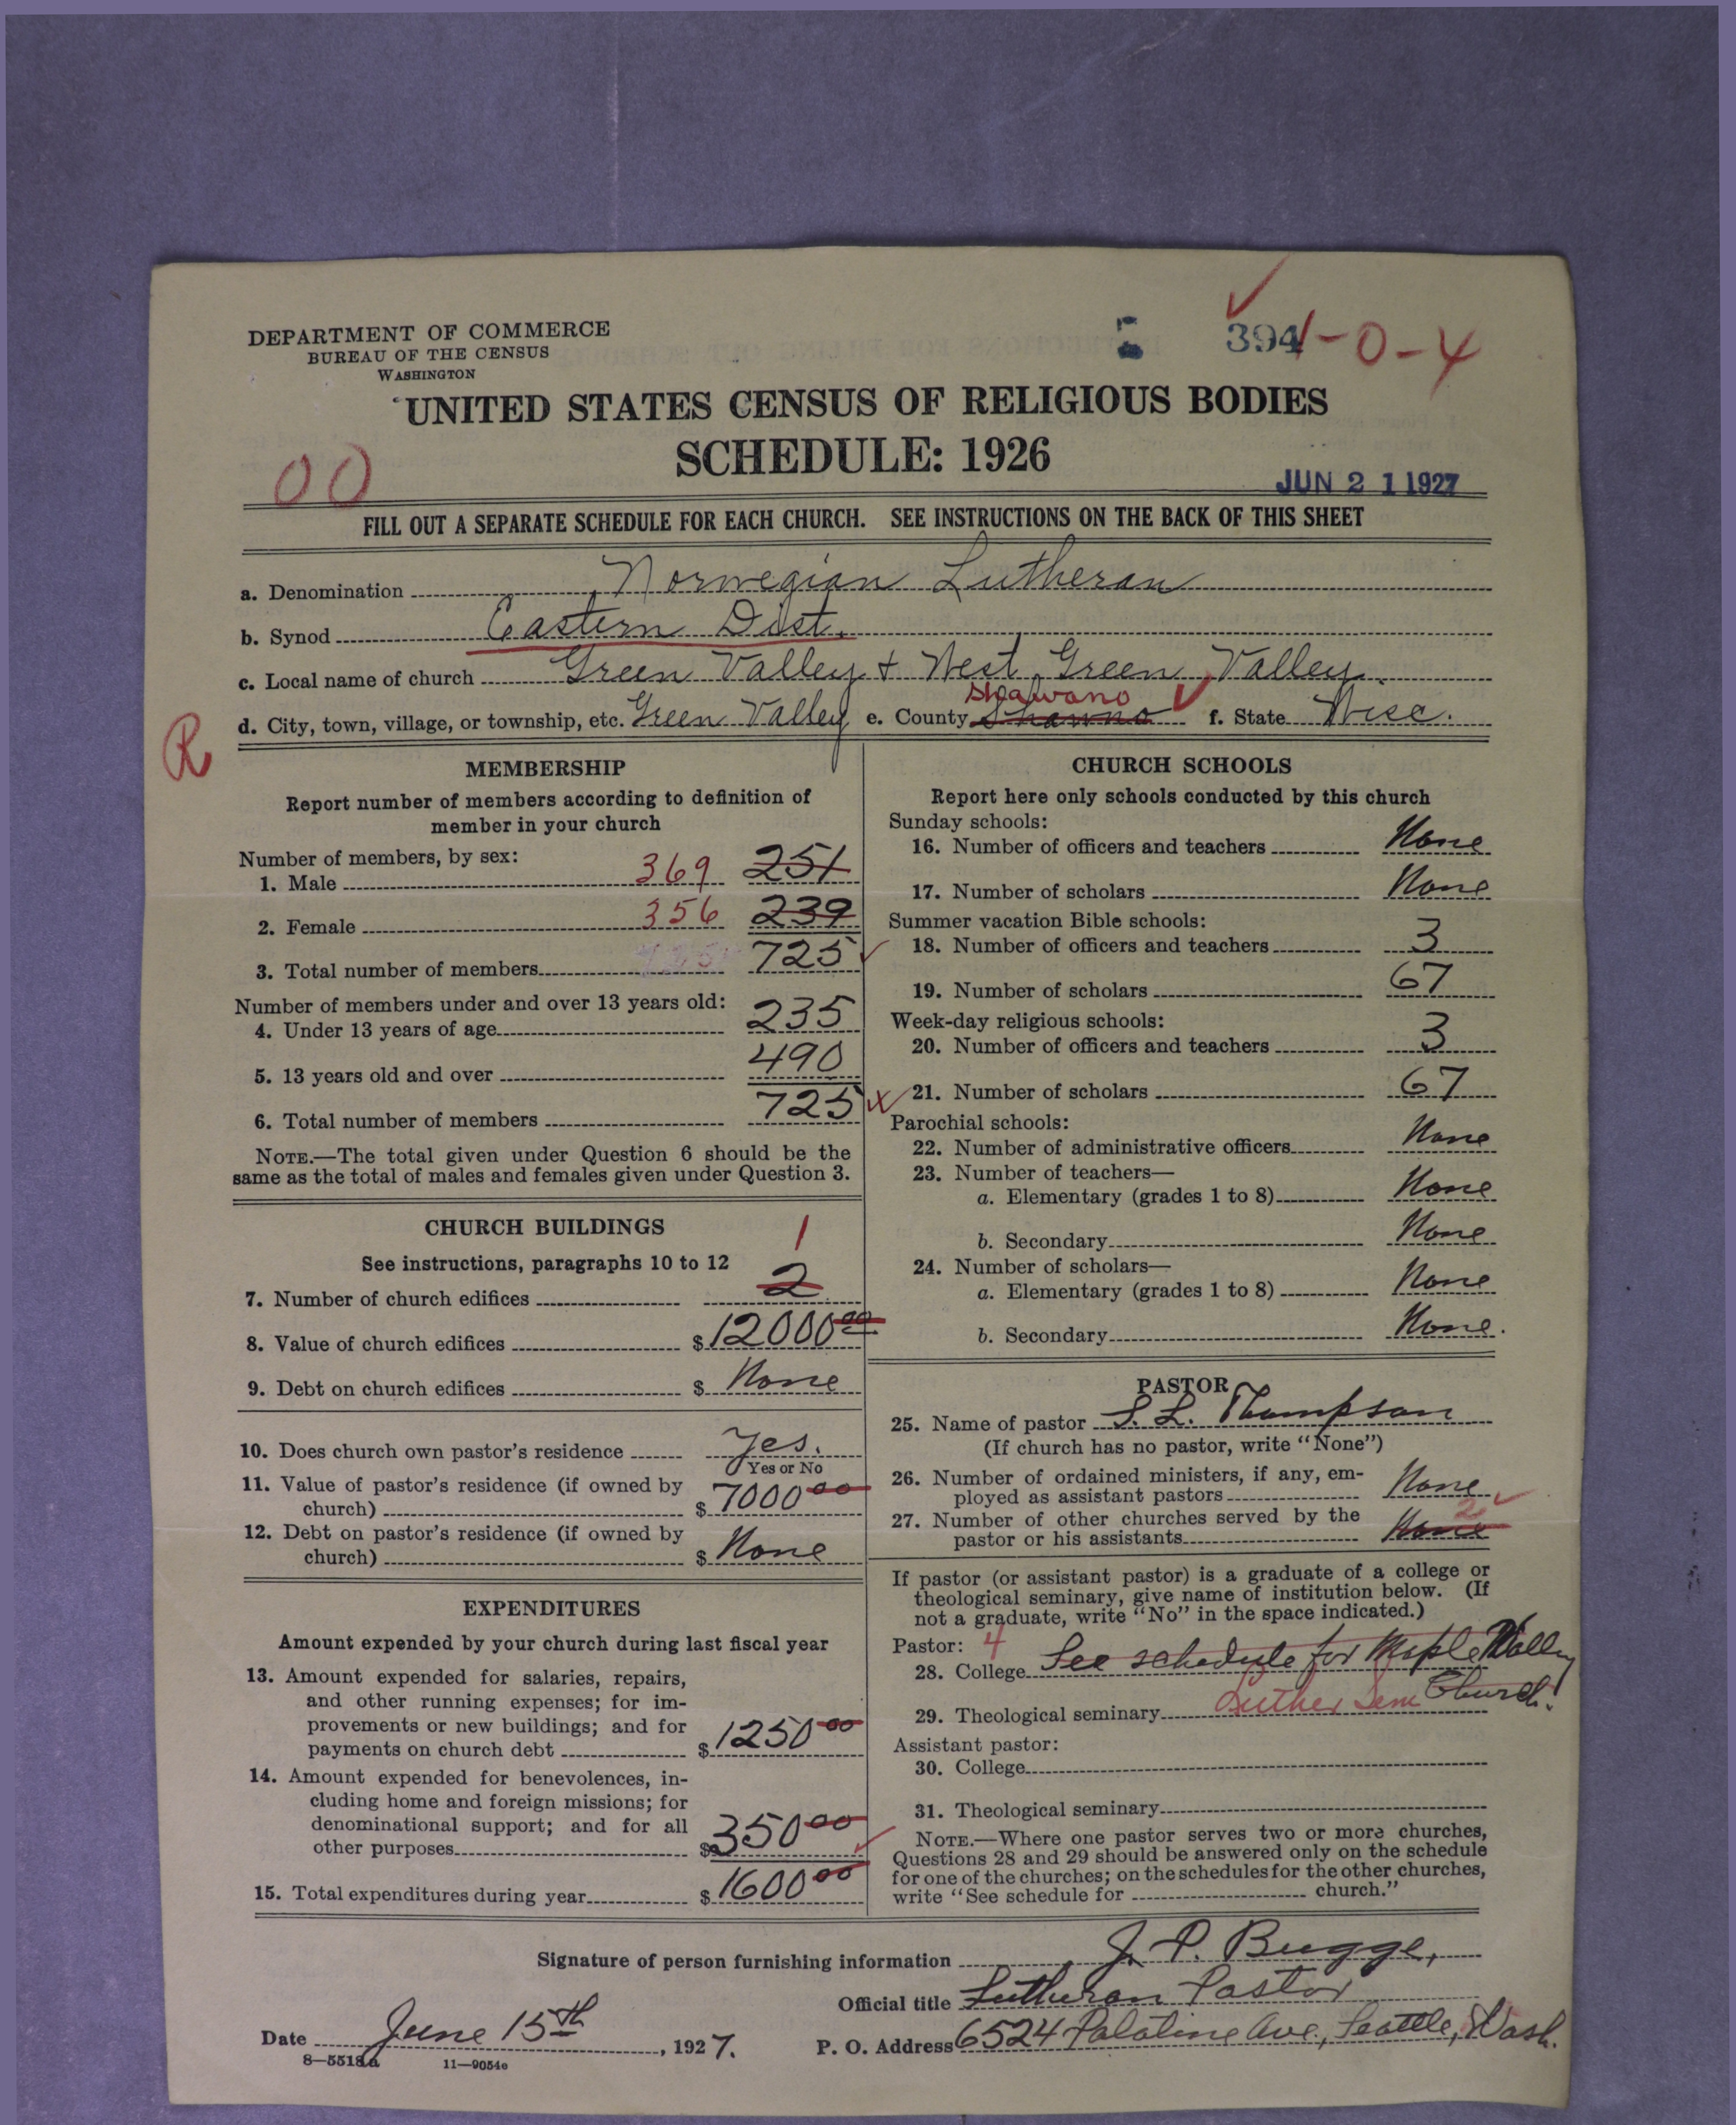 DEPARTMENT OF COMMERCE
BUREAU OF THE CENSUS
WASHINGTON
394 1-0-4
UNITED STATES CENSUS OF RELIGIOUS BODIES
SCHEDULE: 1926
00
JUN 21 1927
FILL OUT A SEPARATE SCHEDULE FOR EACH CHURCH. SEE INSTRUCTIONS ON THE BACK OF THIS SHEET
a. Denomination Norwegian Lutheran
b. Synod Eastern Dist.
c. Local name of church Green Valley + West Green Valley.
Shawano
d. City, town, village, or township, etc. Green Valley e. County Shawno f. State Wisc.
R
MEMBERSHIP
Report number of members according to definition of
member in your church
Number of members, by sex:
1. Male 369 251
2. Female 356 239
3. Total number of members 725
Number of members under and over 13 years old:
4. Under 13 years of age 235
5. 13 years old and over 490
6. Total number of members 725
NOTE.—The total given under Question 6 should be the
same as the total of males and females given under Question 3.
CHURCH BUILDINGS
See instructions, paragraphs 10 to 12
1
7. Number of church edifices 2
8. Value of church edifices $12000 00
9. Debt on church edifices $ None
10. Does church own pastor's residence Yes.
Yes or No
11. Value of pastor's residence (if owned by
church) $7000 00
12. Debt on pastor's residence (if owned by
church) $ None
EXPENDITURES
Amount expended by your church during last fiscal year
13. Amount expended for salaries, repairs,
and other running expenses; for im-
provements or new buildings; and for
payments on church debt $1250 00
14. Amount expended for benevolences, in-
cluding home and foreign missions; for
denominational support; and for all
other purposes $350 00
15. Total expenditures during year $1600 00
CHURCH SCHOOLS
Report here only schools conducted by this church
Sunday schools:
16. Number of officers and teachers None
17. Number of scholars None
Summer vacation Bible schools:
18. Number of officers and teachers 3
19. Number of scholars 67
Week-day religious schools:
20. Number of officers and teachers 3
21. Number of scholars 67
Parochial schools:
22. Number of administrative officers None
23. Number of teachers—
a. Elementary (grades 1 to 8) None
b. Secondary None
24. Number of scholars—
a. Elementary (grades 1 to 8) None
b. Secondary None.
PASTOR
25. Name of pastor S. L. Thompson
(If church has no pastor, write "None")
26. Number of ordained ministers, if any, em-
ployed as assistant pastors None
27. Number of other churches served by the
2
pastor or his assistants None
If pastor (or assistant pastor) is a graduate of a college or
theological seminary, give name of institution below. (If
not a graduate, write "No" in the space indicated.)
Pastor: 4
28. College See schedule for Maple Valley
Church.
29. Theological seminary Luther Sem
Assistant pastor:
30. College
31. Theological seminary
NOTE.—Where one pastor serves two or more churches,
Questions 28 and 29 should be answered only on the schedule
for one of the churches; on the schedules for the other churches,
write "See schedule for church."
Signature of person furnishing information J. P. Bugge,
Official title Lutheran Pastor
Date June 15th, 1927. P. O. Address 6524 Palatine Ave., Seattle, Wash.
8—5518a 11—9054e